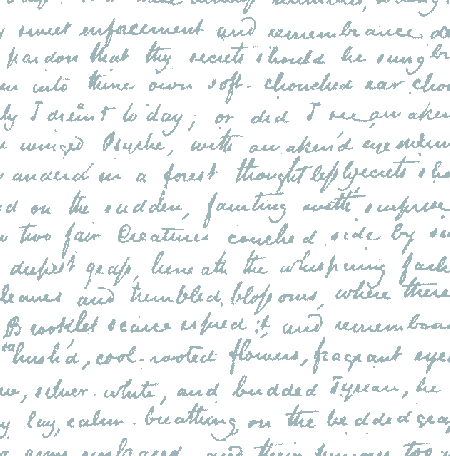 sweet enforcement and remembrance de
pardon that thy secrets should be sung b
en into thine own soft-chonched ear choo
ly I dreamt to day; or did I see awaken
winged Psyche, with awaken'd eyes
wanderd in a forest thoughtlessly
d on the sudden, fainting with surprise
w two fair Creatures couched side by si
deepest grass, beneath the whispering
leaves and trembled blossoms, where there
Brooklet scarce espied: and remembran
hush'd, cool-rooted flowers, fragrant eye
ue, silver-white, and budded Tyrian, he
y lay, calm-breathing on the bedded gras
arms embraced and their too